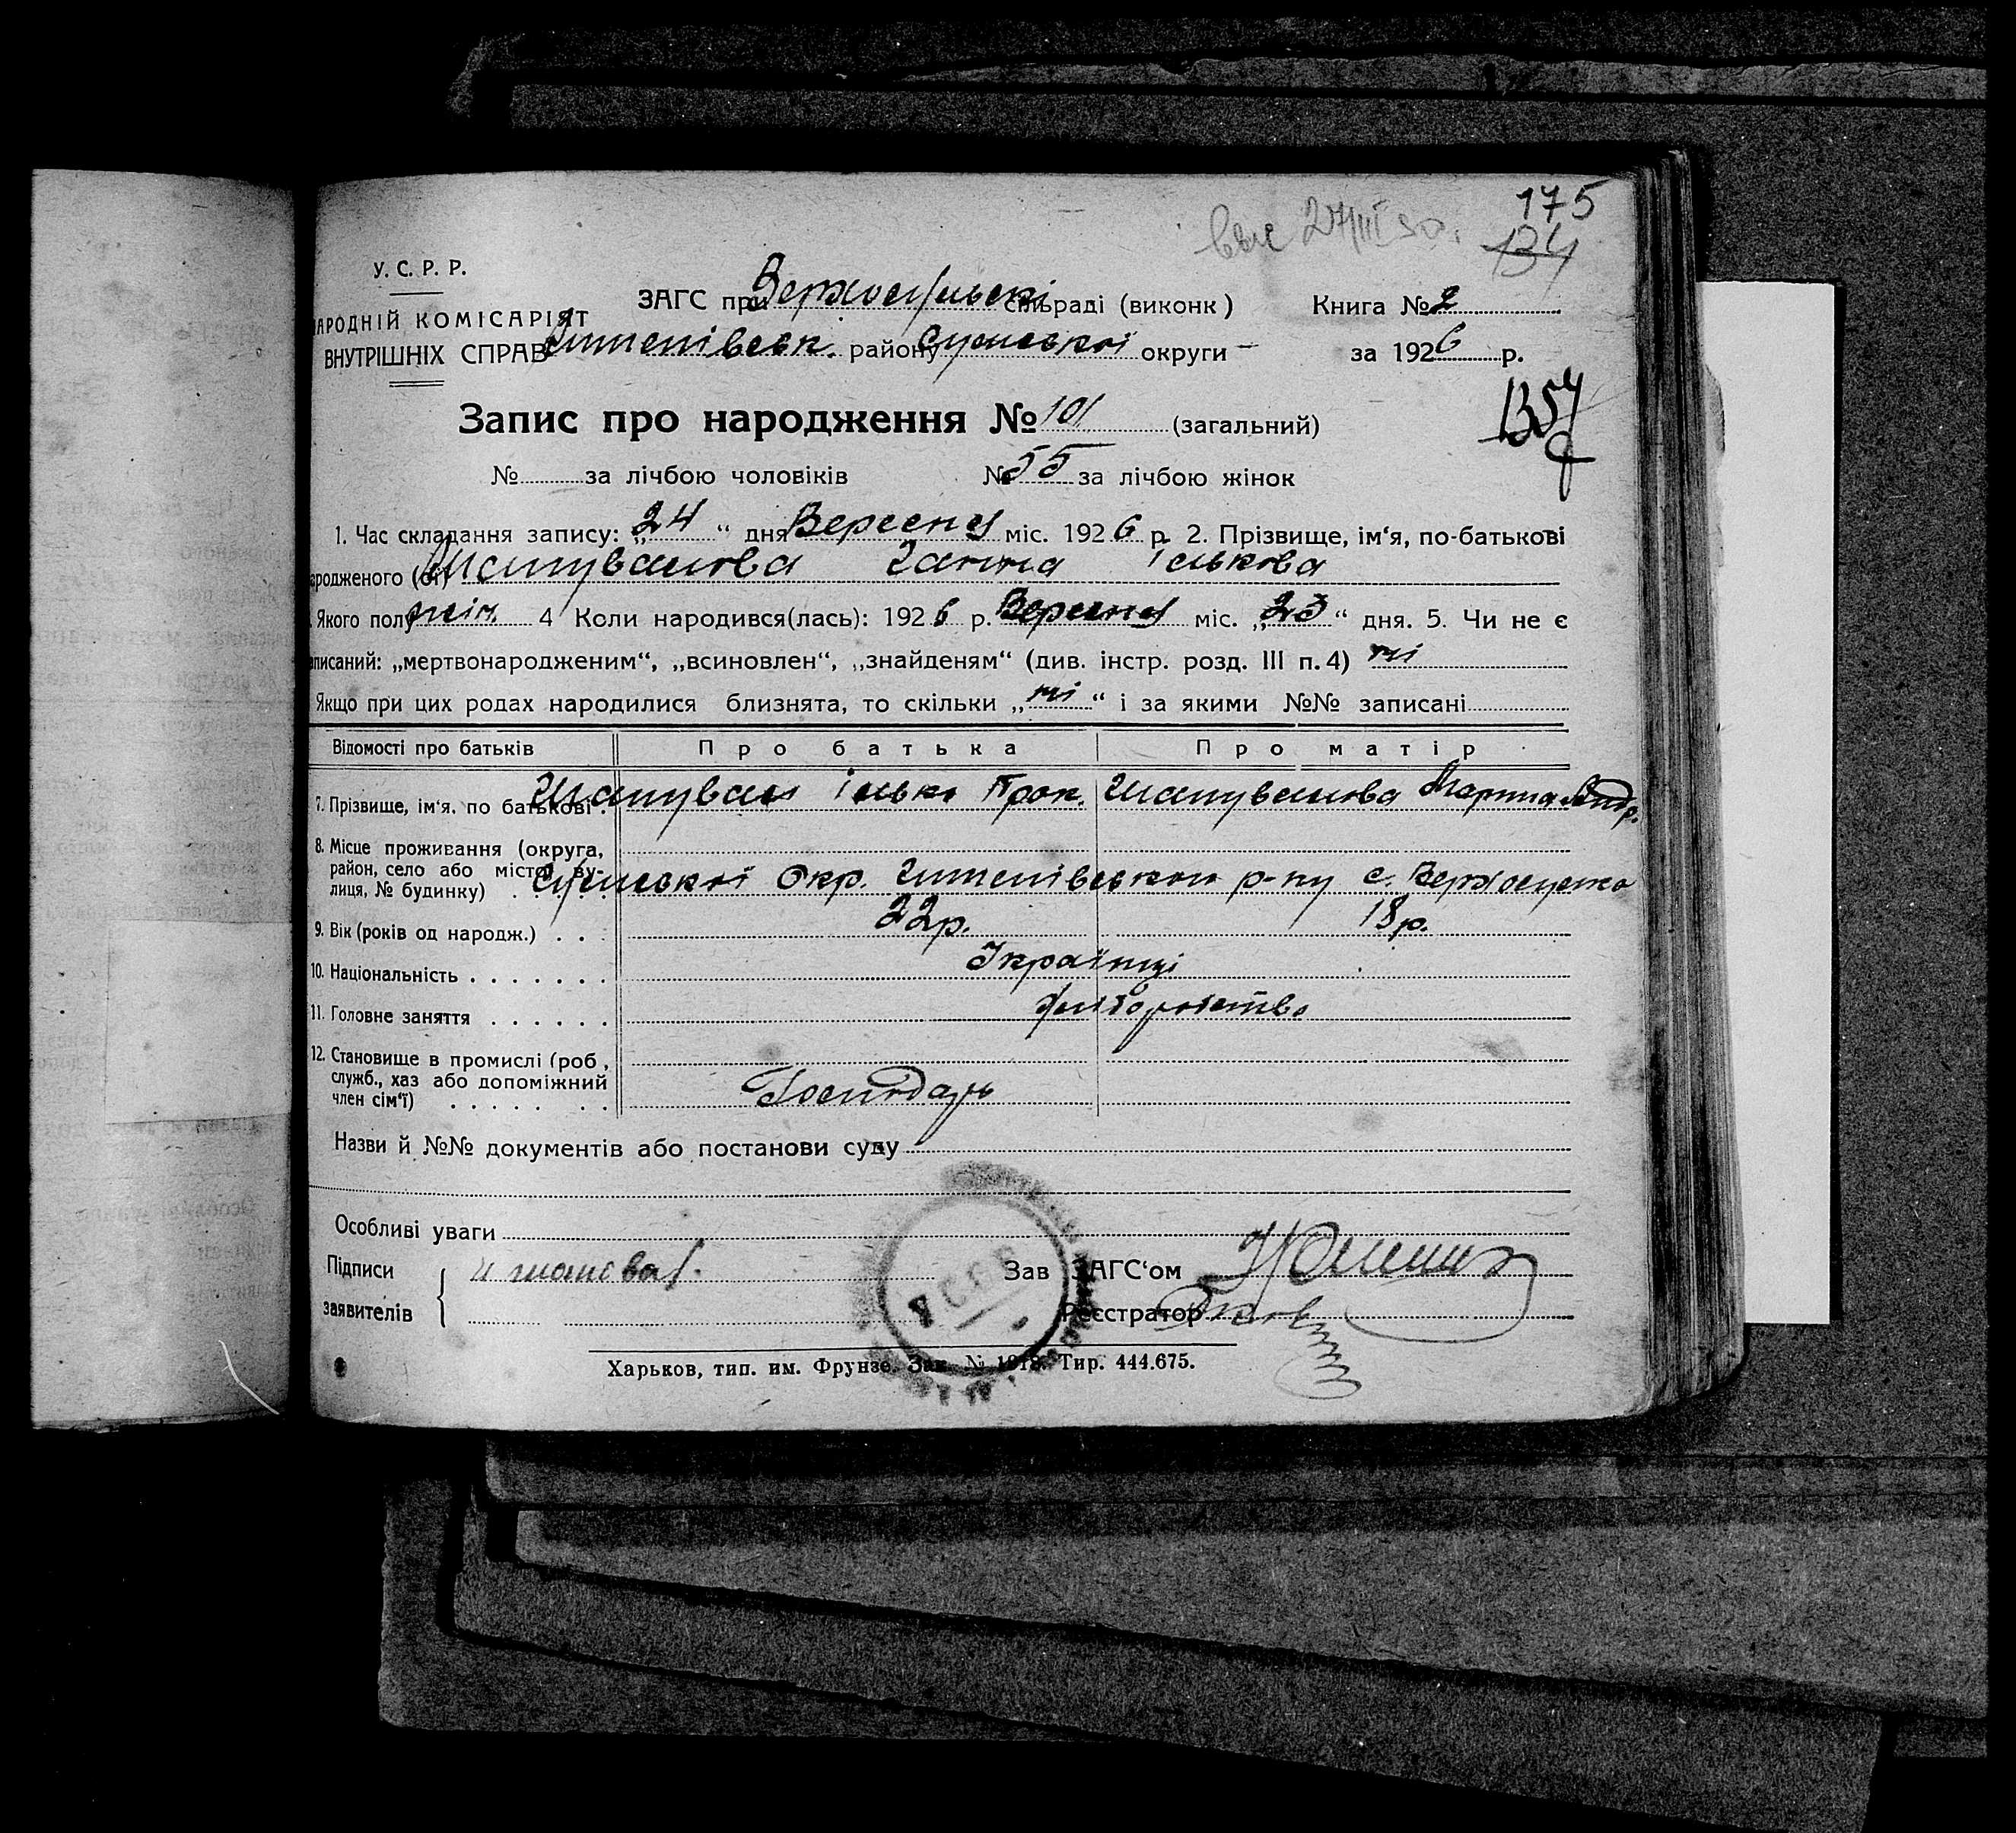 175
134
У. С. Р. Р.
ЗАГС при сільраді (виконк) Книга № 2
НАРОДНІЙ КОМІСАРІЯТ
ВНУТРІШНІХ СПРАВ району Сумської округи за 1926 р.
1357
Запис про народження № 101 (загальний)
№ за лічбою чоловіків № 55 за лічбою жінок
1. Час складання запису: „24“ дня Вересня міс. 1926 р. 2. Прізвище, ім'я, по-батькові
народженого (ої) Шапувалова Ганна Ількова
Якого полу жін. 4 Коли народився(лась): 1926 р. Вересня міс. „23“ дня. 5. Чи не є
записаний: „мертвонародженим“, „всиновлен“, „знайденям“ (див. інстр. розд. III п. 4) ні
Якщо при цих родах народилися близнята, то скільки „ні“ і за якими №№ записані
Відомості про батьків Про батька Про матір
7. Прізвище, ім'я. по батькові. Шапувал Ілько Прок. Шапувалова Марина Андр.
8. Місце проживання (округа,
район, село або місто, ву-
лиця, № будинку) Сумської Окр. р-ну с.
9. Вік (років од народж.) 22р. 18р.
10. Національність Українці
11. Головне заняття Хліборобство
12. Становище в промислі (роб,
служб., хаз або допоміжний
член сім'ї) Господарь
Назви й №№ документів або постанови суду
Особливі уваги
Підписи
заявителів
Зав ЗАГС'ом
Реєстратор
УСРР
Харьков, тип. им. Фрунзе. Зак. № Тир. 444.675.